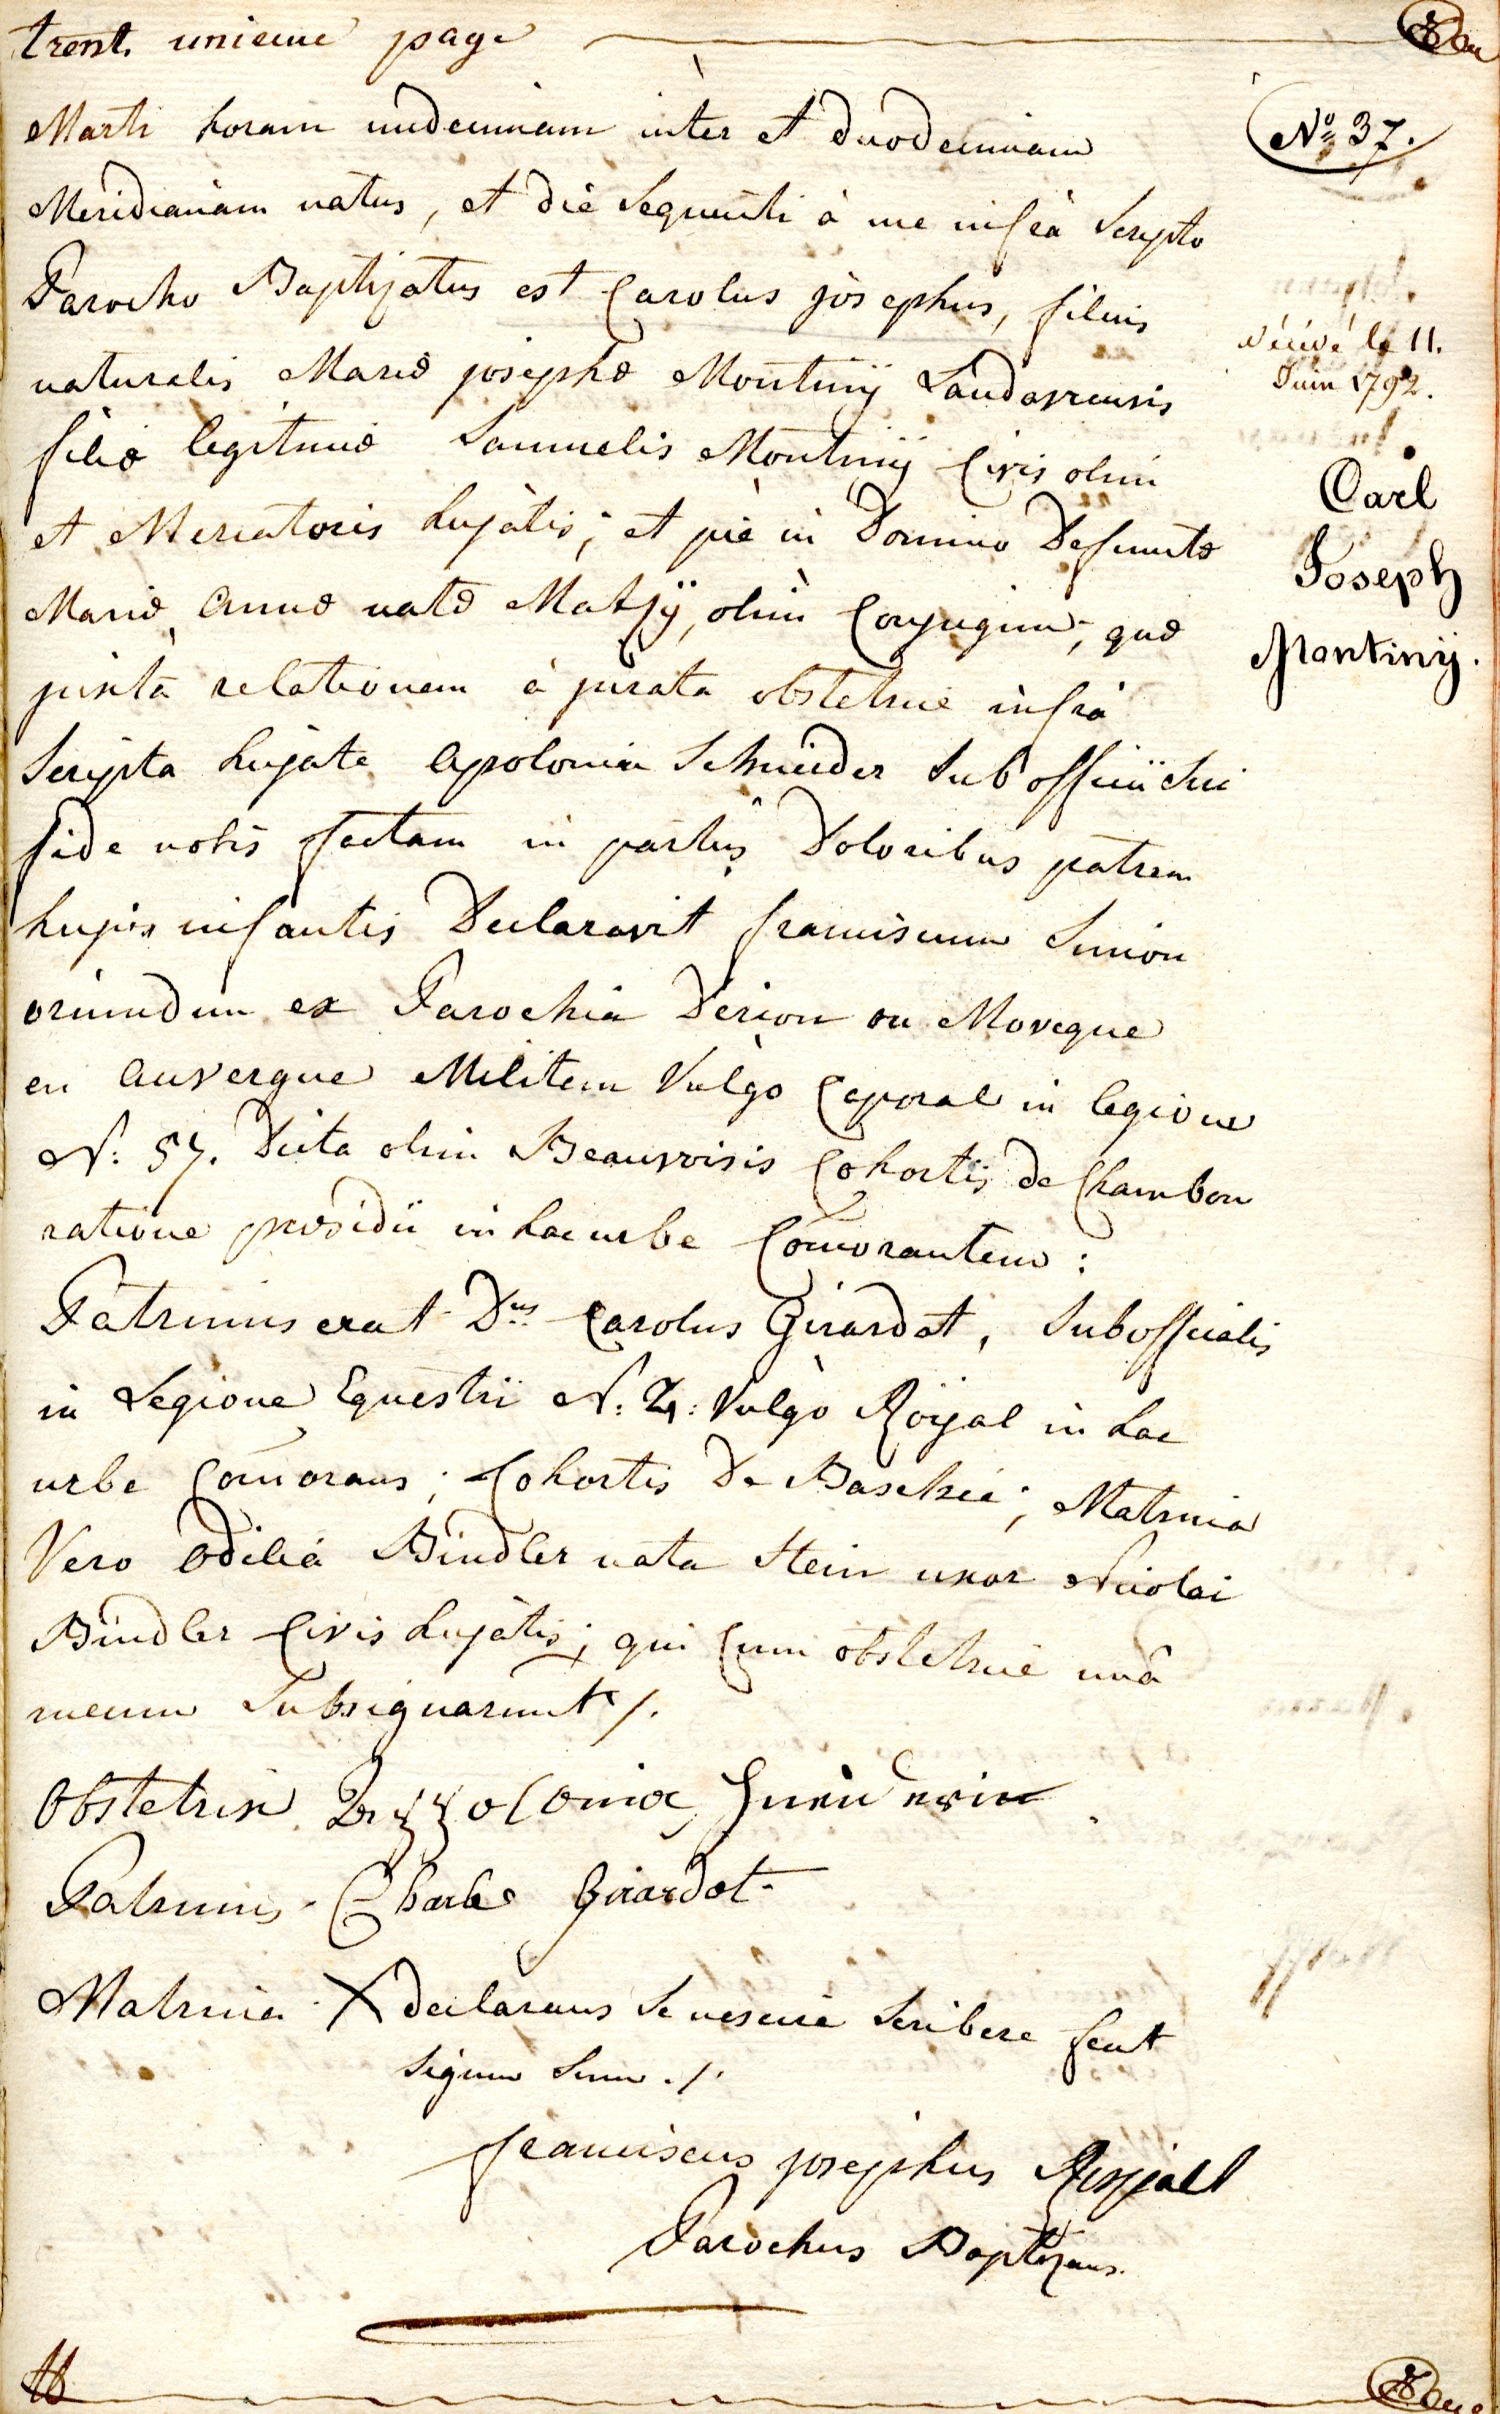 trent. unieme page
Marti horam undecimam inter et duodecimam
Nº 37.
Meridianam natus, et die sequenti à me infrà scripto
Parocho Baptizatus est Carolus josephus, filius
naturalis Mariæ josephæ Montinÿ Landaviensis
vérivé le 11.
Juin 1792.
filiæ legitimæ Samuelis Montinÿ Civis olim
et Mercatoris hujatis; et piè in Domino Defunctæ
Mariæ Annæ natæ Matzÿ, olim Conjugum; quæ
Carl
Joseph
Montinÿ.
juxtà relationem à jurata obstetrice infrà
scripta hujate Apolonia Schneider sub officii sui
fide nobis factam in partus Doloribus patrem
hujus infantis Declaravit franciscum Simon
oriundum ex Parochia Derion ou Moveque
en auvergne Militem Vulgo Caporal in legione
N: 57. Dicta olim Beauvoisis Cohortis de Chambon
ratione præsidii in hac urbe Com̄orantem:
Patrinus erat Dnus Carolus Girardot, subofficialis
in Legione Equestri N: 2: Vulgò Roÿal in hac
urbe Com̄orans; Cohortis De Baschié; Matrina
Vero Odilia Bindler nata Stein uxor Nicolai
Bindler Civis hujatis; qui Cum obstetrice unâ
mecum subsignarunt /.
Obstetrix Appolonia
Patrinus Charle Girardot
Matrina X declarans se nescire scribere fecit
signum suum ./.
franciscus josephus
Parochus Baptizans.